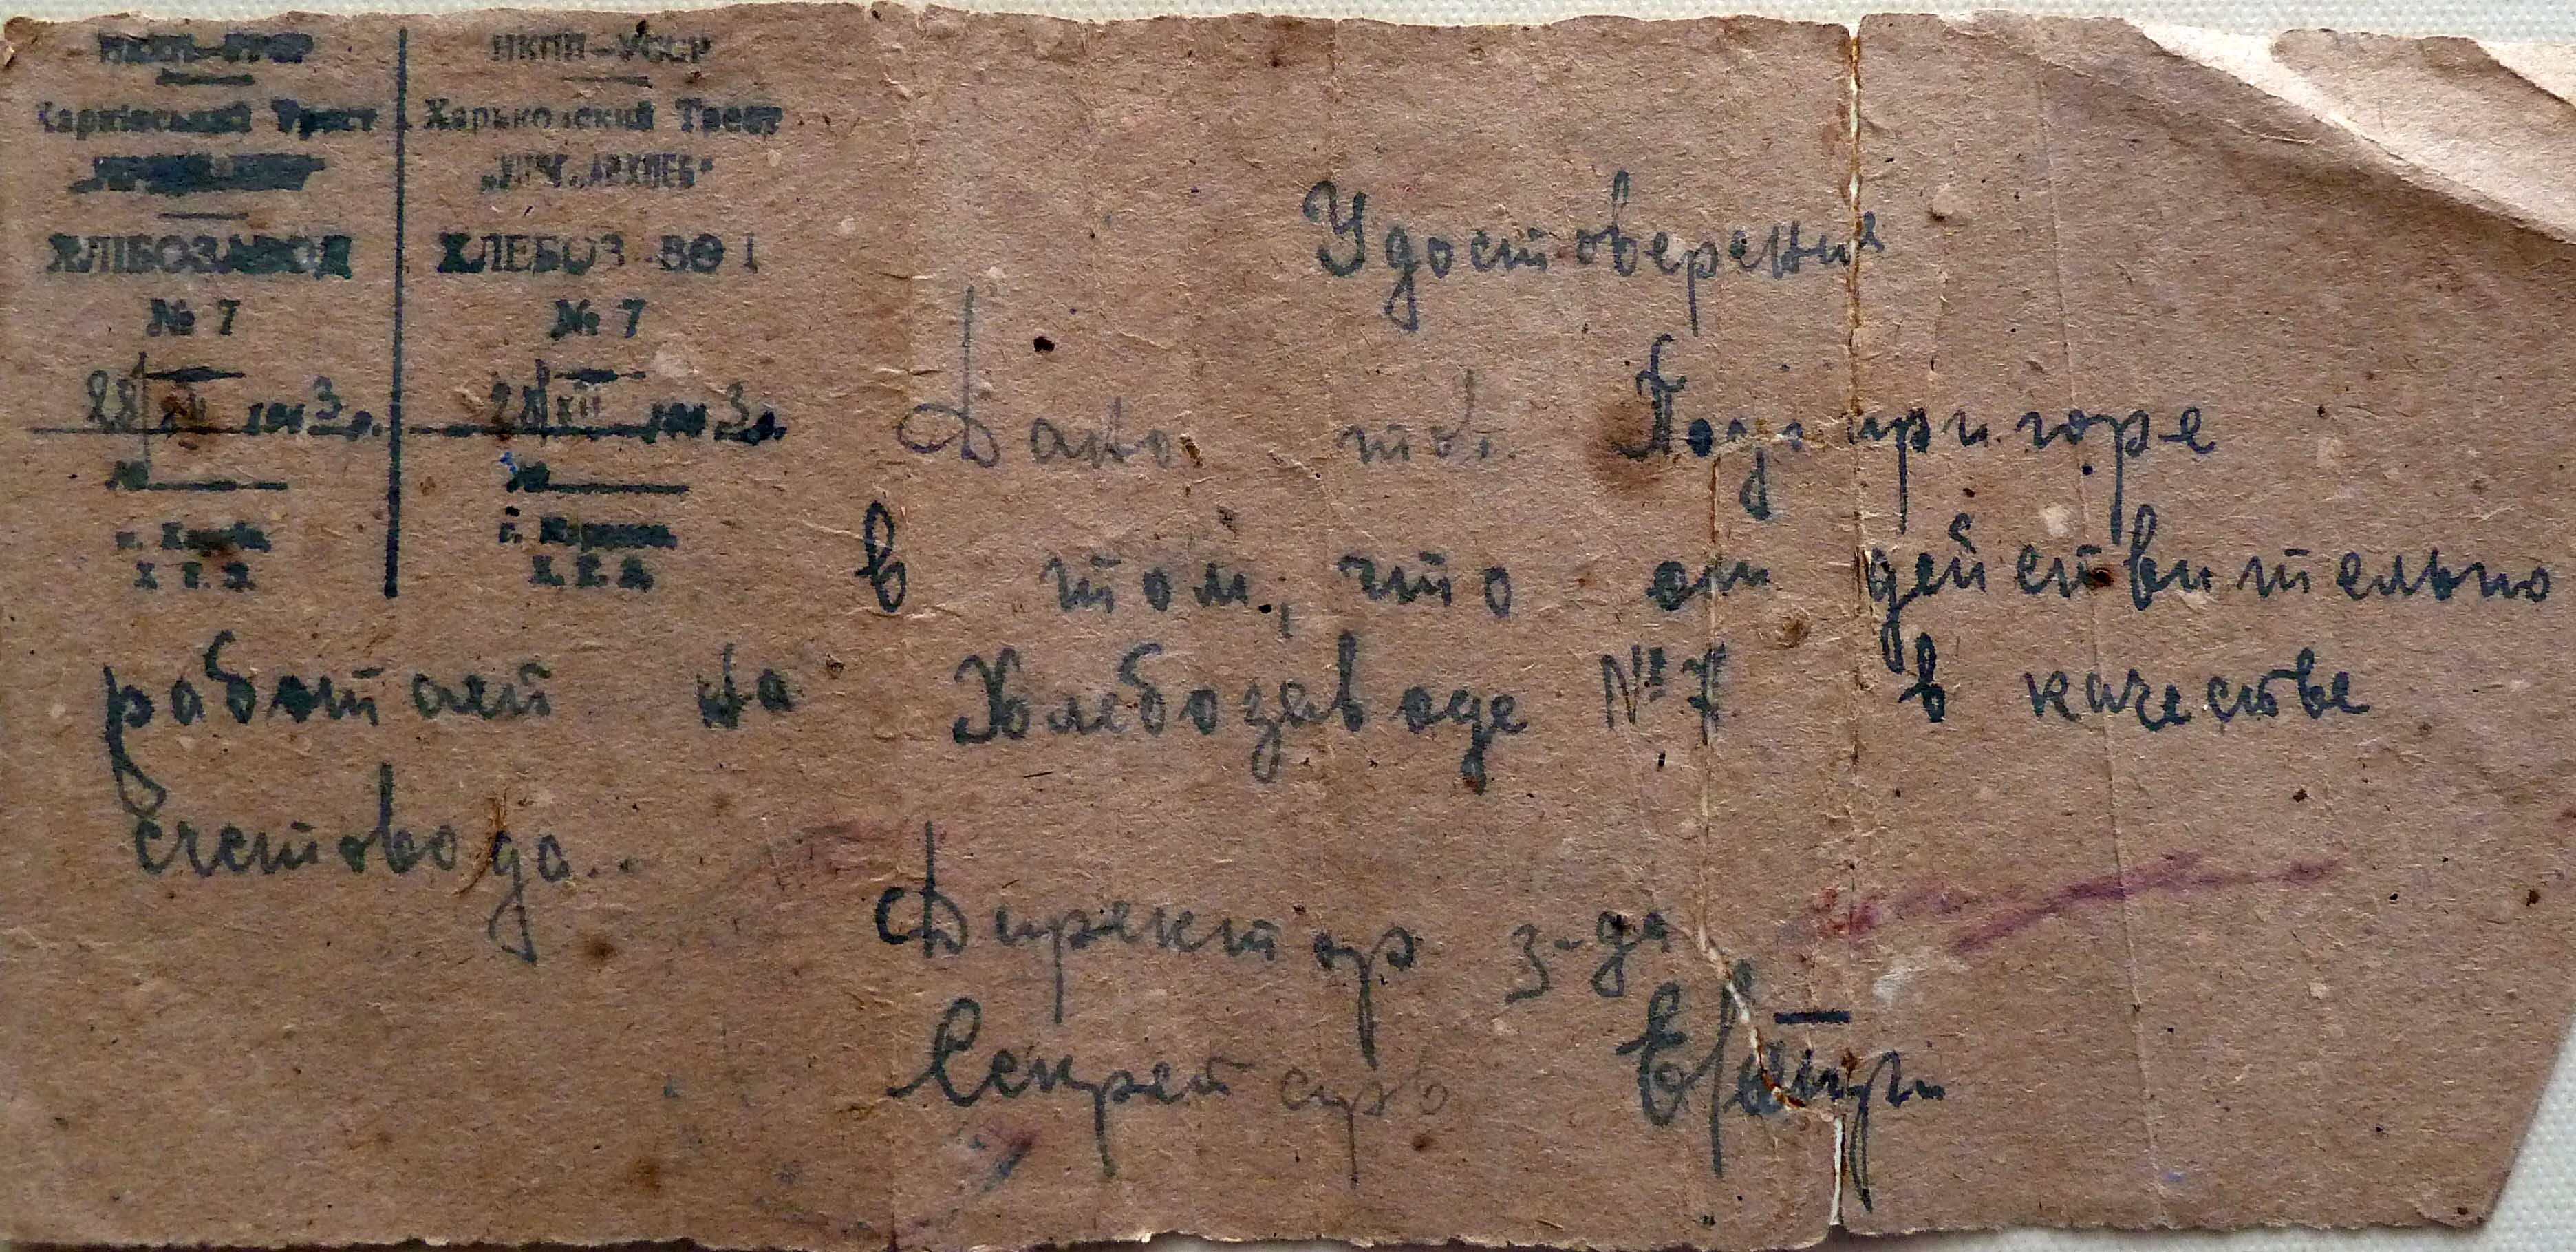 НКПП–УССР
Харківський Трест
ХЛІБОЗАВОД
№ 7
28 XII 1943 р.
№
м. Харків
НКПП–УССР
Харьковский Трест
„УКРГЛАВХЛЕБ"
ХЛЕБОЗАВОД
№ 7
28 XII 1943 г.
№
г. Харьков
Удостоверение
Дано тов.
в том, что он действительно
работает на Хлебозаводе № 7 в качестве
счетовода..
Директор з-да
Секретарь